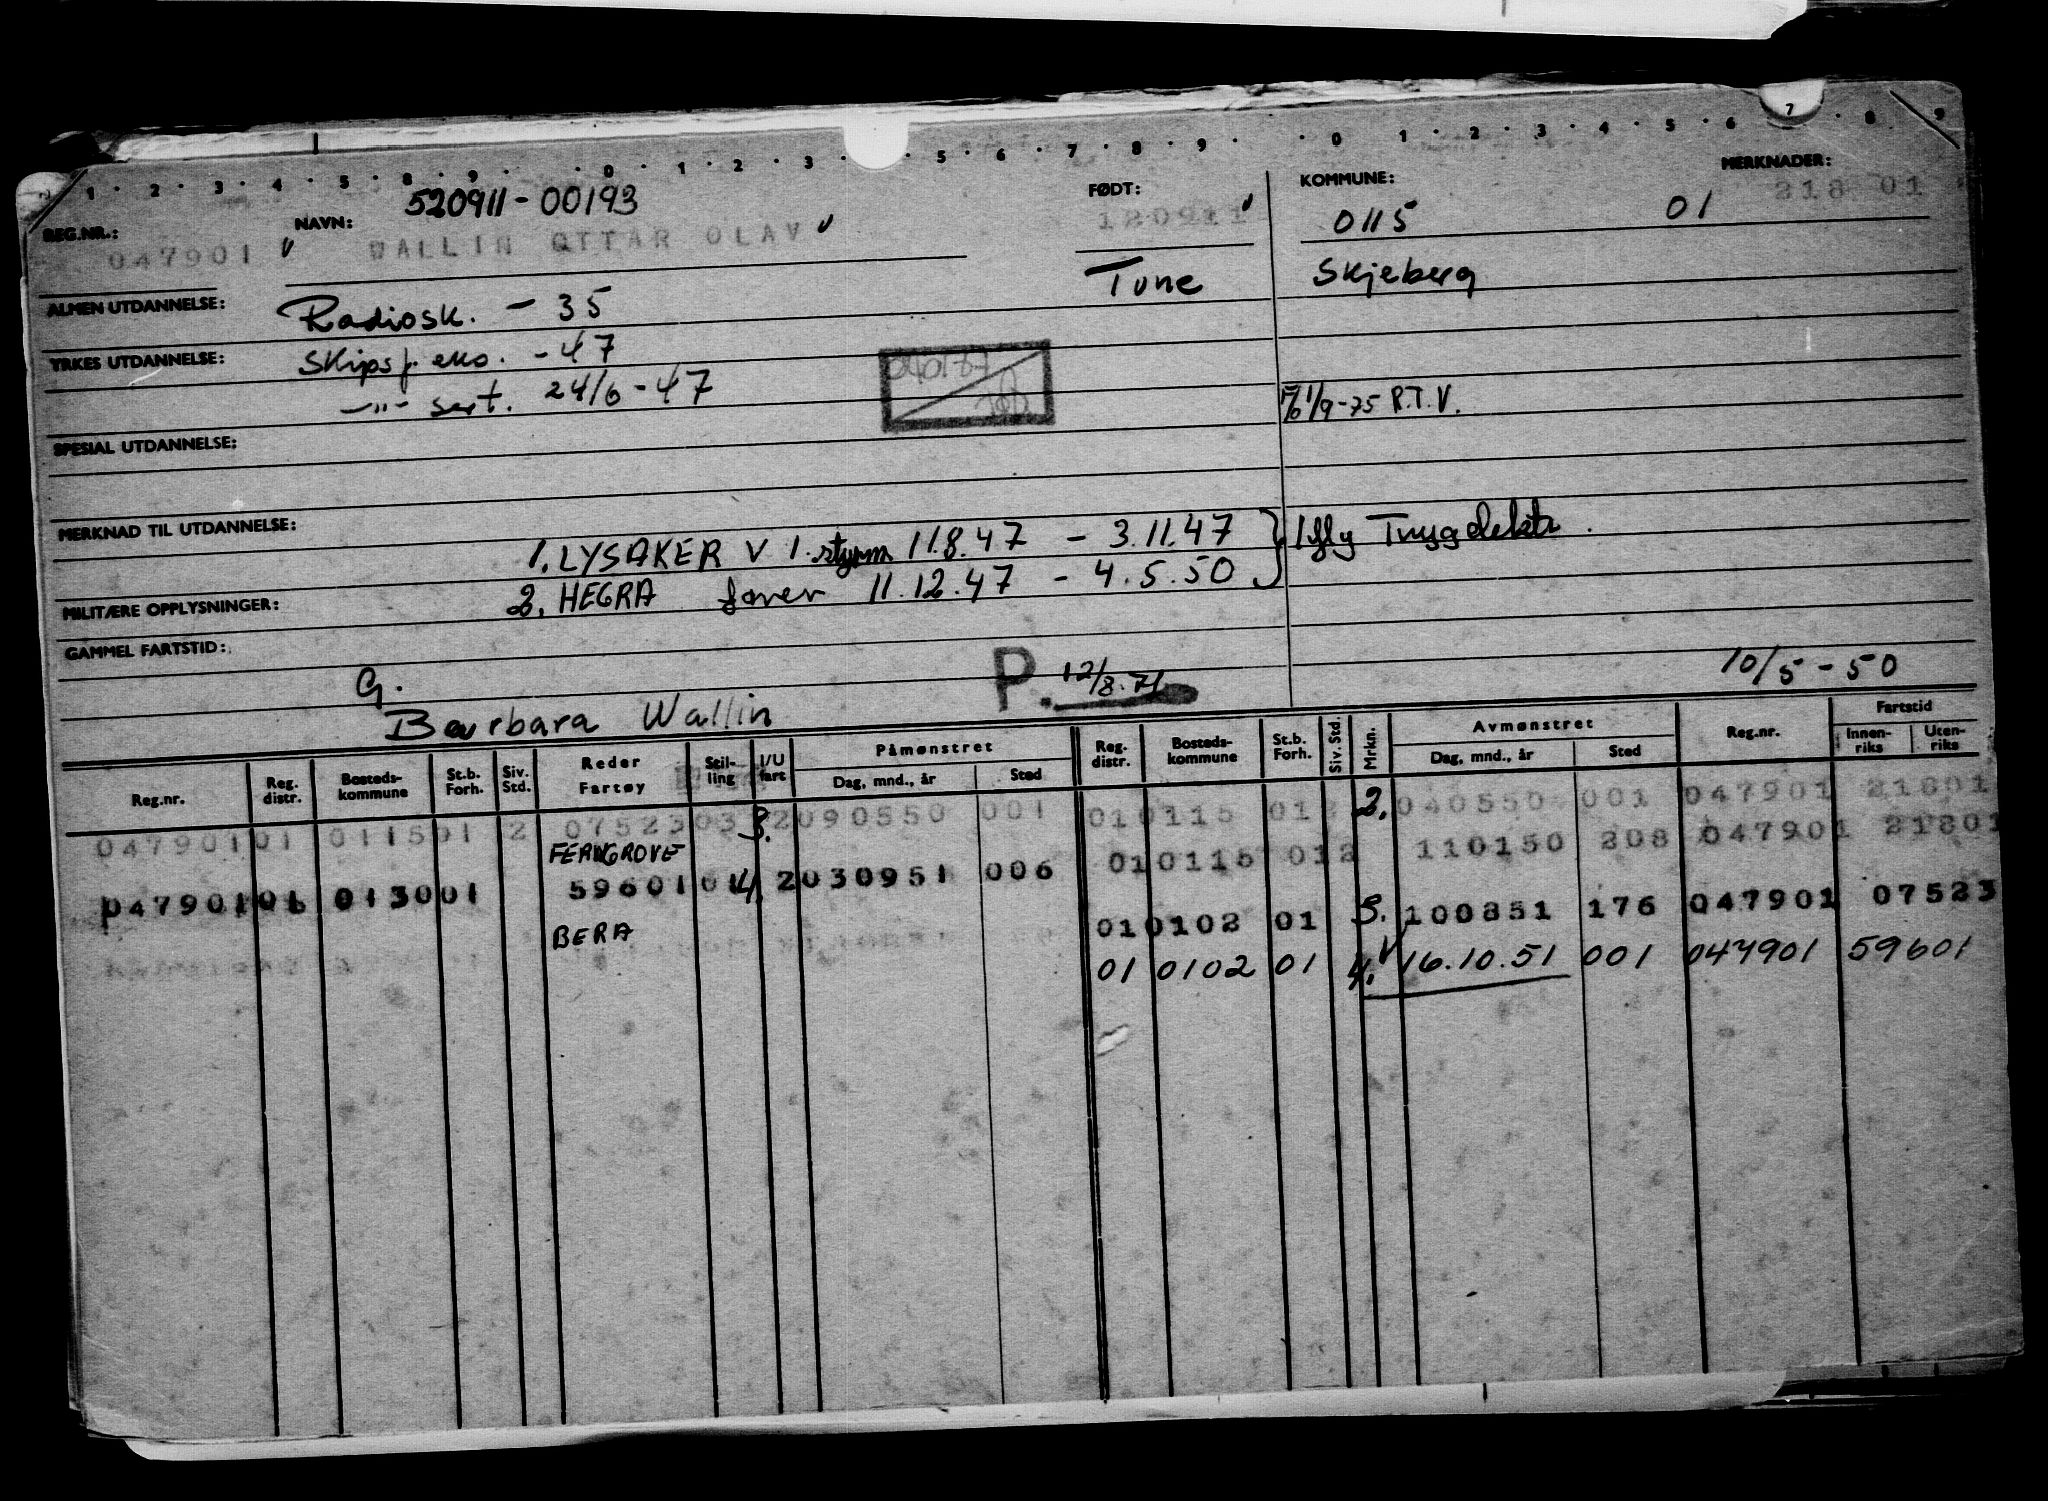 1 · 2 · 3 · 4 · 5 · 8 · 9 · · 0 · 1 · 2 · 3 · · 5 · 6 · 7 · 8 · 9 · · 0 · 1 · 2 · 3 · 4 · 5 · 6 · 7 · 8 · 9
MERKNADER:
520911-00193 FØDT: KOMMUNE: 218 01
REG.NR.: NAVN: 120911 0115 01
047901 WALLIN OTTAR OLAV
ALMEN UTDANNELSE: Radiosk. - 35 Tune Skjeberg
YRKES UTDANNELSE: Skipsf. eks. - 47
-"- sert. 24/6 - 47 1/9-75 R.T.V.
SPESIAL UTDANNELSE:
MERKNAD TIL UTDANNELSE:
1. LYSAKER V 1. styrm 11.8.47 - 3.11.47 } Ifly Trygdektr.
MILITÆRE OPPLYSNINGER: 2. HEGRA fører 11.12.47 - 4.5.50
GAMMEL FARTSTID:
G. P. 12/8.71 10/5 - 50
Barbara Wallin
Reg.nr. Reg. distr. Bosteds-kommune St.b. Forh. Siv. Std. Reder Fartøy Stil-ling I/U fart Påmønstret Dag, mnd., år Sted Reg. distr. Bosteds-kommune St.b. Forh. Siv. Std. Mrkn. Avmønstret Dag, mnd., år Sted Reg.nr. Fartstid Innen-riks Uten-riks
047901 01 0115 01 2 07523 03 3. 2 090550 001 01 0115 01 2 2. 040550 001 047901 21801
FERNGROVE 01 0115 01 2 110150 208 047901 21801
047901 01 0130 01 59601 01 4. 2 030951 006 01 0102 01 3. 100851 176 047901 07523
BERA 01 0102 01 4. 16.10.51 001 047901 59601